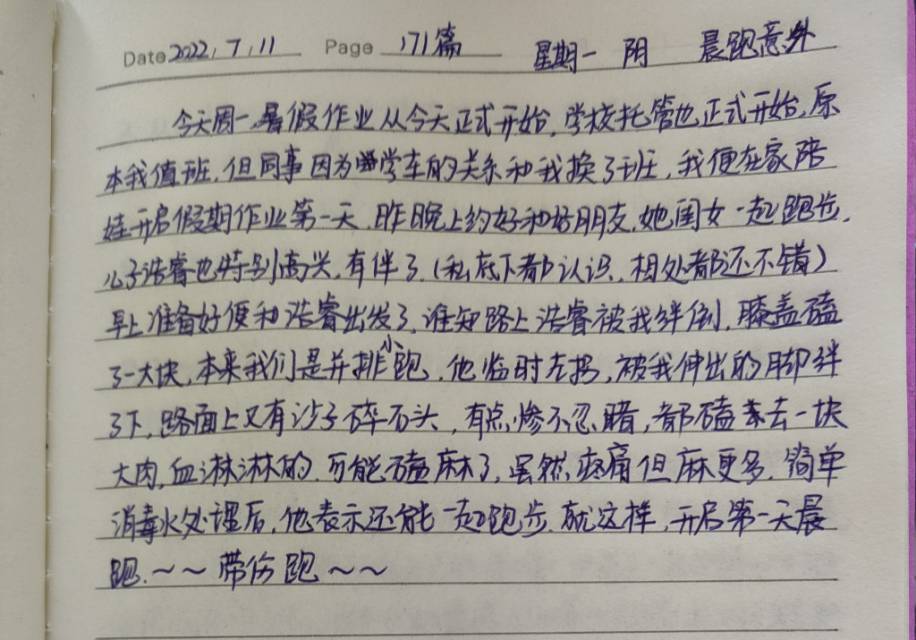 Date 2022,7,11 Page 171篇 星期一 阴 晨跑意外
今天周一,暑假作业从今天正式开始,学校托管也正式开始,原
本我值班,但同事因为学车的关系和我换了班,我便在家陪
娃开启假期作业第一天,昨晚上约好和好朋友,她闺女一起跑步,
儿子浩睿也特别高兴,有伴了(私底下都认识,相处都还不错)
早上准备好便和浩睿出发了,谁知路上浩睿被我绊倒,膝盖磕
了一大块,本来我们是并排小跑,他临时左拐,被我伸出的脚绊
了下,路面上又有沙子碎石头,有点惨不忍睹,都磕去一块
大肉,血淋淋的,可能磕麻了,虽然疼痛但麻更多,简单
消毒水处理后,他表示还能一起跑步,就这样,开启第一天晨
跑.~~带伤跑~~